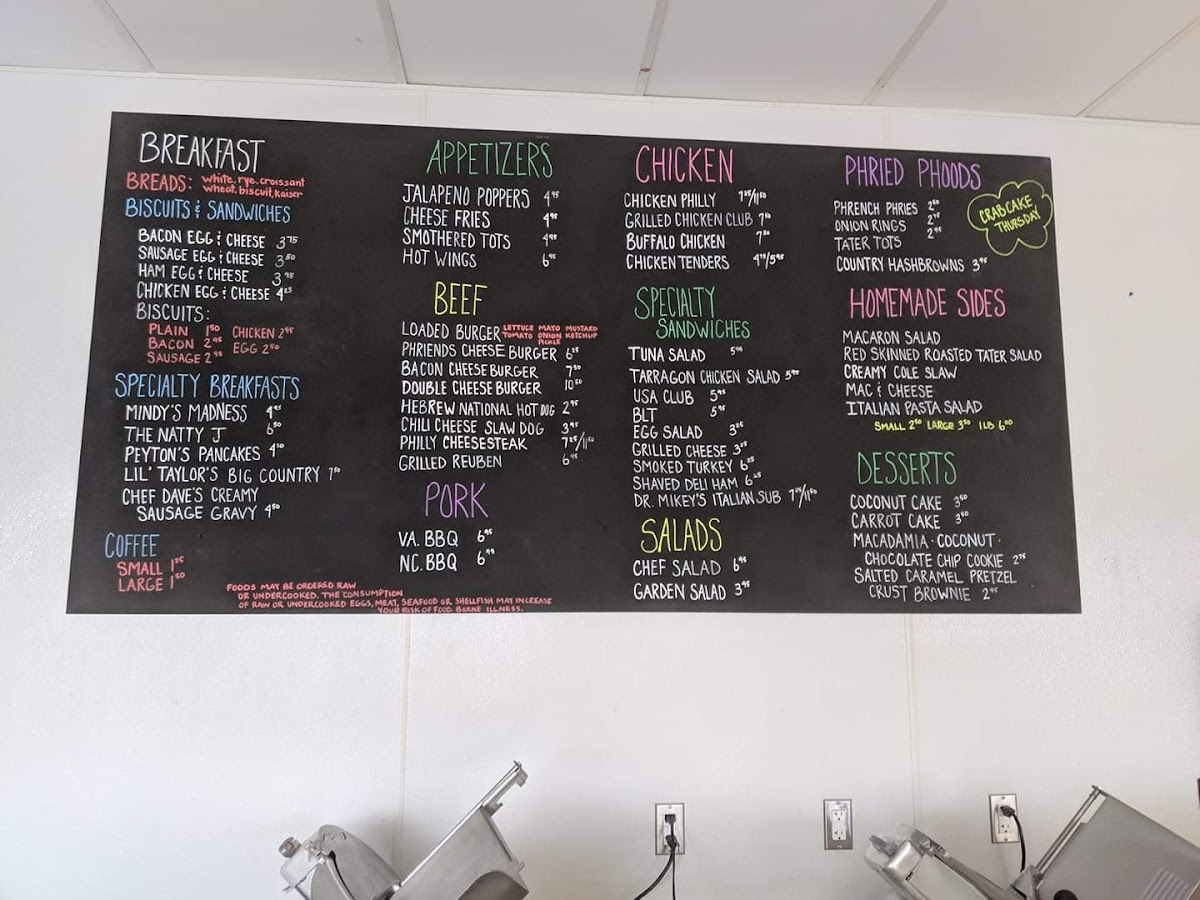 BREAKFAST
BREADS: white, rye, croissant
wheat, biscuit, kaiser
BISCUITS & SANDWICHES
BACON EGG & CHEESE 3 75
SAUSAGE EGG & CHEESE 3 50
HAM EGG & CHEESE 3 95
CHICKEN EGG & CHEESE 4 25
BISCUITS:
PLAIN 1 50 CHICKEN 2 95
BACON 2 95 EGG 2 50
SAUSAGE 2 95
SPECIALTY BREAKFASTS
MINDY'S MADNESS
THE NATTY J 6 50
PEYTON'S PANCAKES 4 50
LIL' TAYLOR'S BIG COUNTRY 7 50
CHEF DAVE'S CREAMY
SAUSAGE GRAVY 4 50
COFFEE
SMALL 1 25
LARGE 1 50
FOODS MAY BE ORDERED RAW
OR UNDERCOOKED. THE CONSUMPTION
OF RAW OR UNDERCOOKED EGGS, MEAT, SEAFOOD OR SHELLFISH MAY INCREASE
YOUR RISK OF FOOD BORNE ILLNESS.
APPETIZERS
JALAPENO POPPERS 4 95
CHEESE FRIES 4 95
SMOTHERED TOTS 4 95
HOT WINGS 6 95
BEEF
LOADED BURGER LETTUCE MAYO MUSTARD
TOMATO ONION KETCHUP
PICKLE
PHRIENDS CHEESE BURGER 6 25
BACON CHEESE BURGER 7 50
DOUBLE CHEESE BURGER 10 50
HEBREW NATIONAL HOT DOG 2 95
CHILI CHEESE SLAW DOG 3 95
PHILLY CHEESESTEAK 7 25/11 50
GRILLED REUBEN 6 95
PORK
VA. BBQ 6 95
NC. BBQ 6 95
CHICKEN
CHICKEN PHILLY 7 25/11 50
GRILLED CHICKEN CLUB 7 50
BUFFALO CHICKEN 7 50
CHICKEN TENDERS 4 75/5 95
SPECIALTY
SANDWICHES
TUNA SALAD 5 95
TARRAGON CHICKEN SALAD 5 95
USA CLUB 5 95
BLT 5 95
EGG SALAD 3 25
GRILLED CHEESE 3 25
SMOKED TURKEY 6 25
SHAVED DELI HAM 6 25
DR. MIKEY'S ITALIAN SUB 7 25/11 50
SALADS
CHEF SALAD 6 95
GARDEN SALAD 3 95
PHRIED PHOODS
PHRENCH PHRIES 2 50
ONION RINGS 2 75
TATER TOTS 2 95
COUNTRY HASHBROWNS 3 95
CRABCAKE
THURSDAY
HOMEMADE SIDES
MACARON SALAD
RED SKINNED ROASTED TATER SALAD
CREAMY COLE SLAW
MAC & CHEESE
ITALIAN PASTA SALAD
SMALL 2 50 LARGE 3 50 1LB 6 00
DESSERTS
COCONUT CAKE 3 50
CARROT CAKE 3 50
MACADAMIA · COCONUT ·
CHOCOLATE CHIP COOKIE 2 75
SALTED CARAMEL PRETZEL
CRUST BROWNIE 2 95